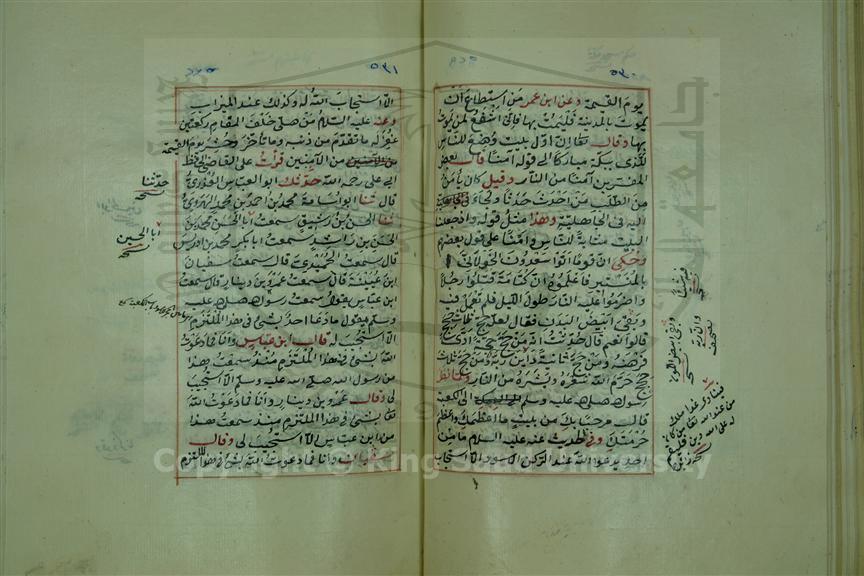 ٥٣٠
يوم القيمة وعن ابن عمر من استطاع ان
يموت بالمدينة فليمت بها فانى اشفع لمن يموت
بها وقال تعالى ان اول بيت وضع للناس
للذى ببكة مباركا الى قوله آمنا قال بعض
المفسرين آمنا من النار وقيل كان يأمن
من الطلب من احدث حدثا ولجاء
اليه فى الجاهلية وهذا مثل قوله واذ جعلنا
البيت مثابة للناس وامنا على قول بعضهم
وحكى ان قوما اتوا سعدون الخولانى
بالمنستير فاعلموه ان كتامة قتلوا رجلا
واضرموا عليه النار طول الليل فلم تعمل فيه
وبقى ابيض البدن فقال لعله حج ثلاث حجج
قالوا نعم قال حدثت ان من حج حجة ادى
فرضه ومن حج ثانية داين ربه ومن حج ثلاث
حجج حرم الله شعره وبشره من النار ولما نظر
رسول الله صلى الله عليه وسلم الى الكعبة
قال مرحبا بك من بيت ما اعظمك واعظم
حرمتك وفى الحديث عنه عليه السلام ما من
احد يدعو الله عند الركن الاسود الا استجاب
٥٣١
الا استجاب الله له وكذلك عند الميزاب
وعنه عليه السلام من صلى خلف المقام ركعتين
غفر له ما تقدم من ذنبه وما تأخر وحشر يوم القيمة
من الآمنين قرأت على القاضى الحافظ
ابى على رحمه الله حدثك ابو العباس العذرى
قال ثنا ابو اسامة محمد بن احمد بن محمد الهروى
ثنا الحسن بن رشيق سمعت ابا الحسن محمد بن
الحسن بن راشد سمعت ابا بكر محمد بن ادريس
قال سمعت الحميدى قال سمعت سفيان
ابن عيينة قال سمعت عمرو بن دينار قال سمعت
ابن عباس يقول سمعت رسول الله صلى الله عليه
وسلم يقول ما دعا احد بشئ فى هذا الملتزم
الا استجيب له قال ابن عباس وانا فما دعوت
الله بشئ فى هذا الملتزم منذ سمعت هذا
من رسول الله صلى الله عليه وسلم الا استجيب
لى وقال عمرو بن دينار وانا فما دعوت الله
تعالى بشئ فى هذا الملتزم منذ سمعت هذا
من ابن عباس الا استجيب لى وقال
سفيان وانا فما دعوت الله بشئ فى هذا الملتزم
حدثنا
نسخة
ابا الحسين
نسخة
Copyright © King Saud University